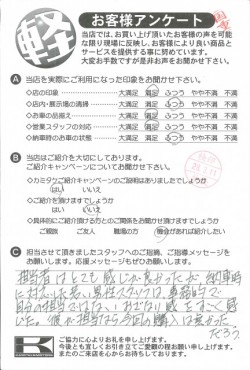 軽
お客様アンケート
当店では、お買い上げ頂いたお客様の声を可能
な限り現場に反映し、お客様により良い商品と
サービスを提供する事に努めています。
大変お手数ですが是非お声をお聞かせ下さい。
A 当店を実際にご利用になった印象をお聞かせ下さい。
◇店の印象 大満足 満足 ふつう やや不満 不満
◇店内・展示場の清掃 大満足 満足 ふつう やや不満 不満
◇お車の品揃え 大満足 満足 ふつう やや不満 不満
◇営業スタッフの対応 大満足 満足 ふつう やや不満 不満
◇お車の状態 大満足 満足 ふつう やや不満 不満
B 当店はご紹介を大切にしております。
ご紹介キャンペーンについてお聞かせ下さい。
◇カミタケご紹介キャンペーンのご説明はありましたでしょうか
はい いいえ
◇ご紹介を頂けますでしょうか
はい いいえ
◇具体的にご紹介頂ける方とのご関係をお聞かせ頂けますでしょうか
ご親族 ご友人 職場の方 機会があれば紹介したい
C 担当させて頂きましたスタッフへのご指摘、ご指導メッセージを
お願いします。応援メッセージもぜひお願いします。
担当者はとても感じが良かったが、納車時
に対応した若い男性スタッフは、事務的で
自分の担当ではない、おざなり感をすごく感
じた。彼が担当なら今回の購入は無かった
だろう。
K
ご協力に心よりお礼を申し上げます。
今後とも宜しくお引き立てご愛顧の程お願い申し上げます。
またのご来店を心からお待ちしております。